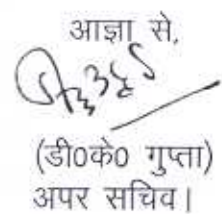 आज्ञा से,
(डी0के0 गुप्ता)
अपर सचिव।